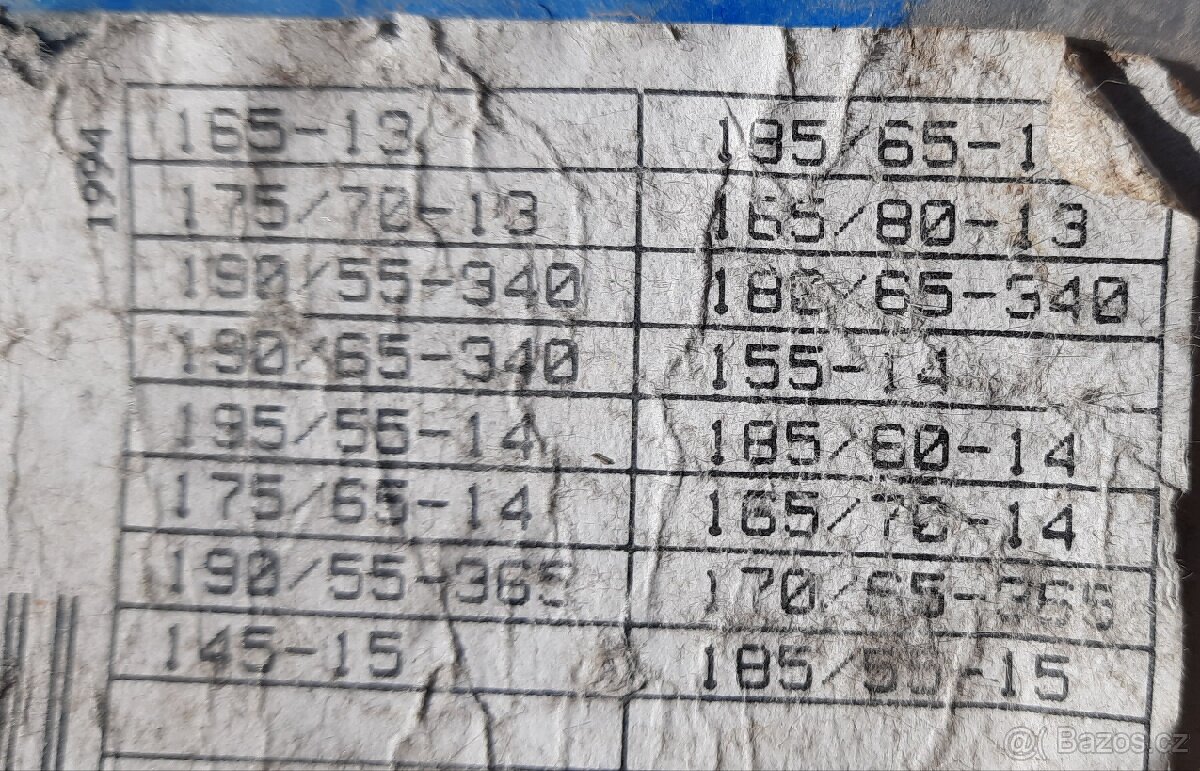 1994
165-13 185/65-1
175/70-13 165/80-13
190/55-340 180/65-340
190/65-340 155-14
195/55-14 185/60-14
175/65-14 165/70-14
190/55-365 170/65-365
145-15 185/55-15
@( Bazos.cz